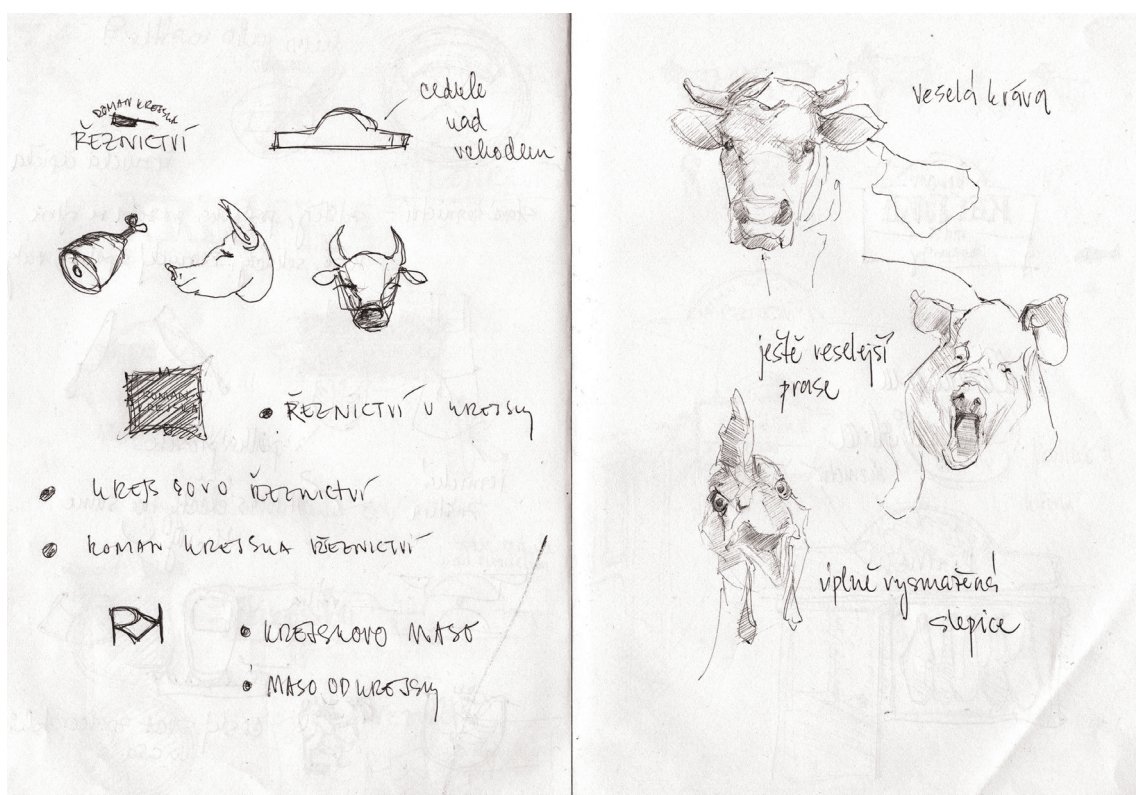 ROMAN KREJSKA
ŘEZNICTVÍ
cedule
nad
vchodem
ROMAN
KREJSKA
• ŘEZNICTVÍ U KREJSKY
• KREJSKOVO ŘEZNICTVÍ
• ROMAN KREJSKA ŘEZNICTVÍ
RK
• KREJSKOVO MASO
• MASO OD KREJSKY
veselá kráva
ještě veselejší
prase
úplně vysmažená
slepice